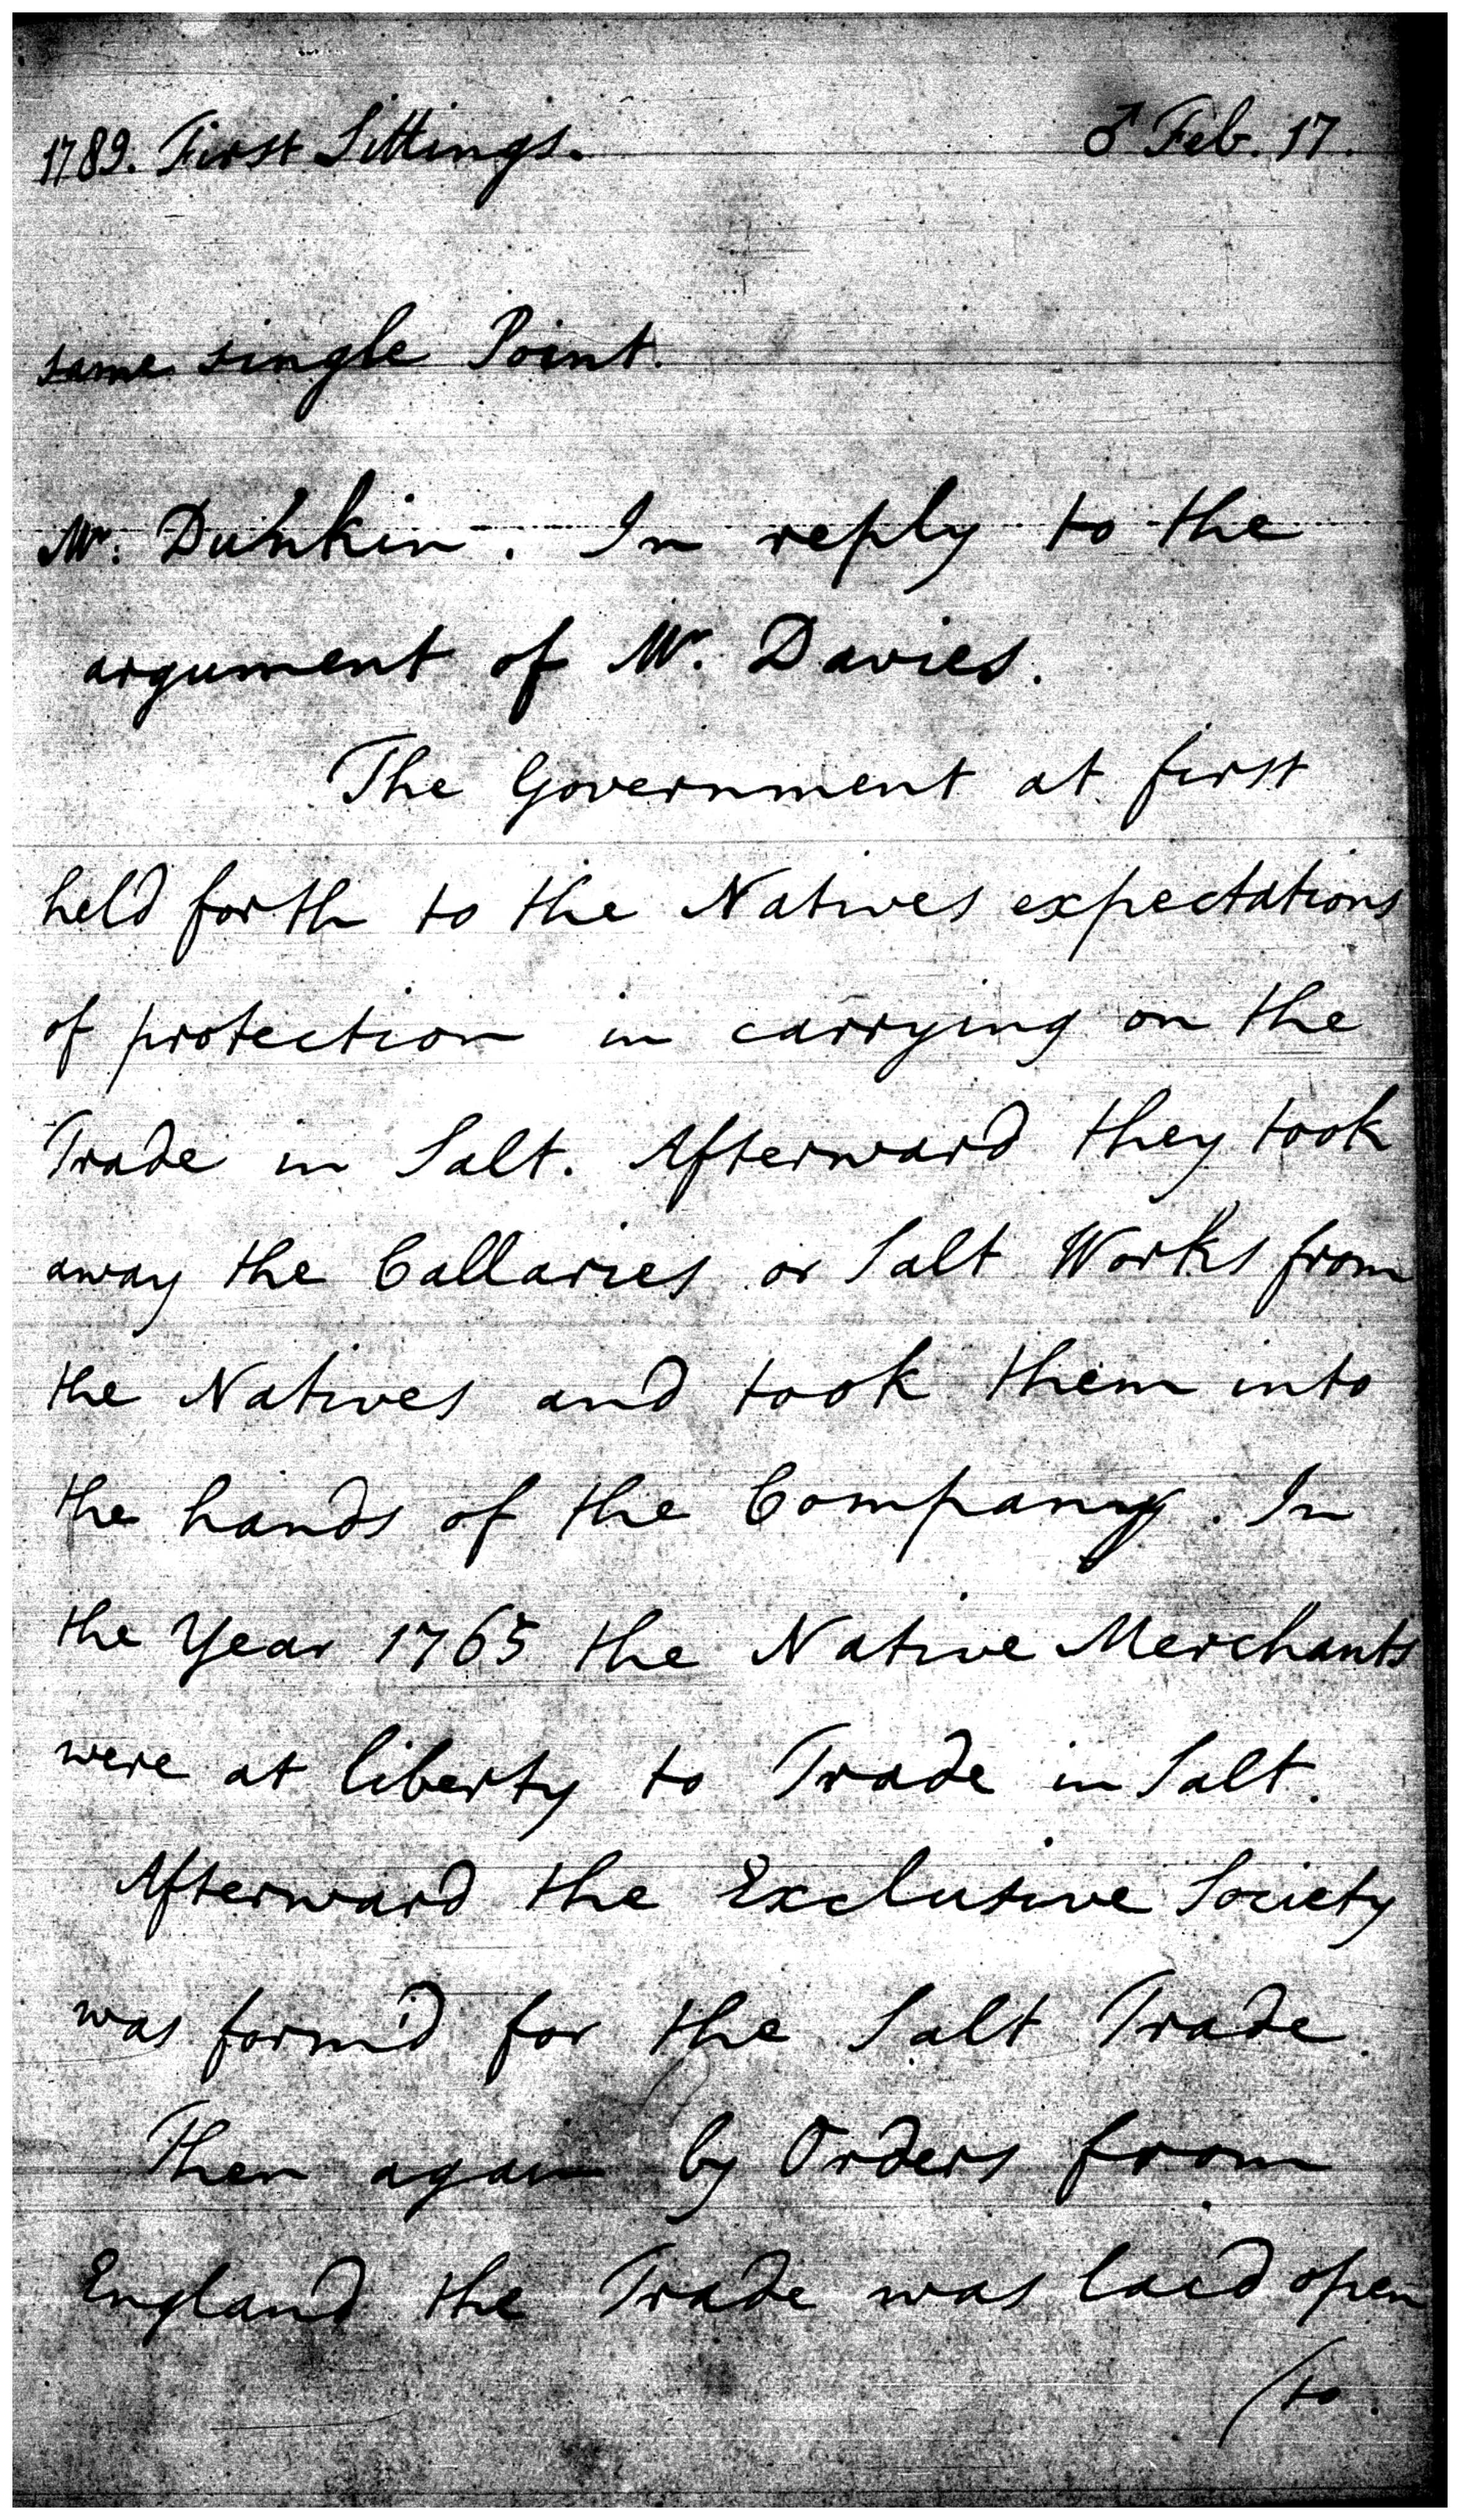 1789. First Sittings. ♂ Feb. 17.
same single Point.
Mr. Dunkin. In reply to the
argument of Mr. Davies.
The Government at first
held forth to the Natives expectations
of protection in carrying on the
Trade in Salt. Afterward they took
away the Callaries or Salt Works from
the Natives and took them into
the hands of the Company. In
the Year 1765 the Native Merchants
were at liberty to Trade in Salt.
Afterward the Exclusive Society
was form'd for the Salt Trade.
Then again by Orders from
England the Trade was laid open
(to